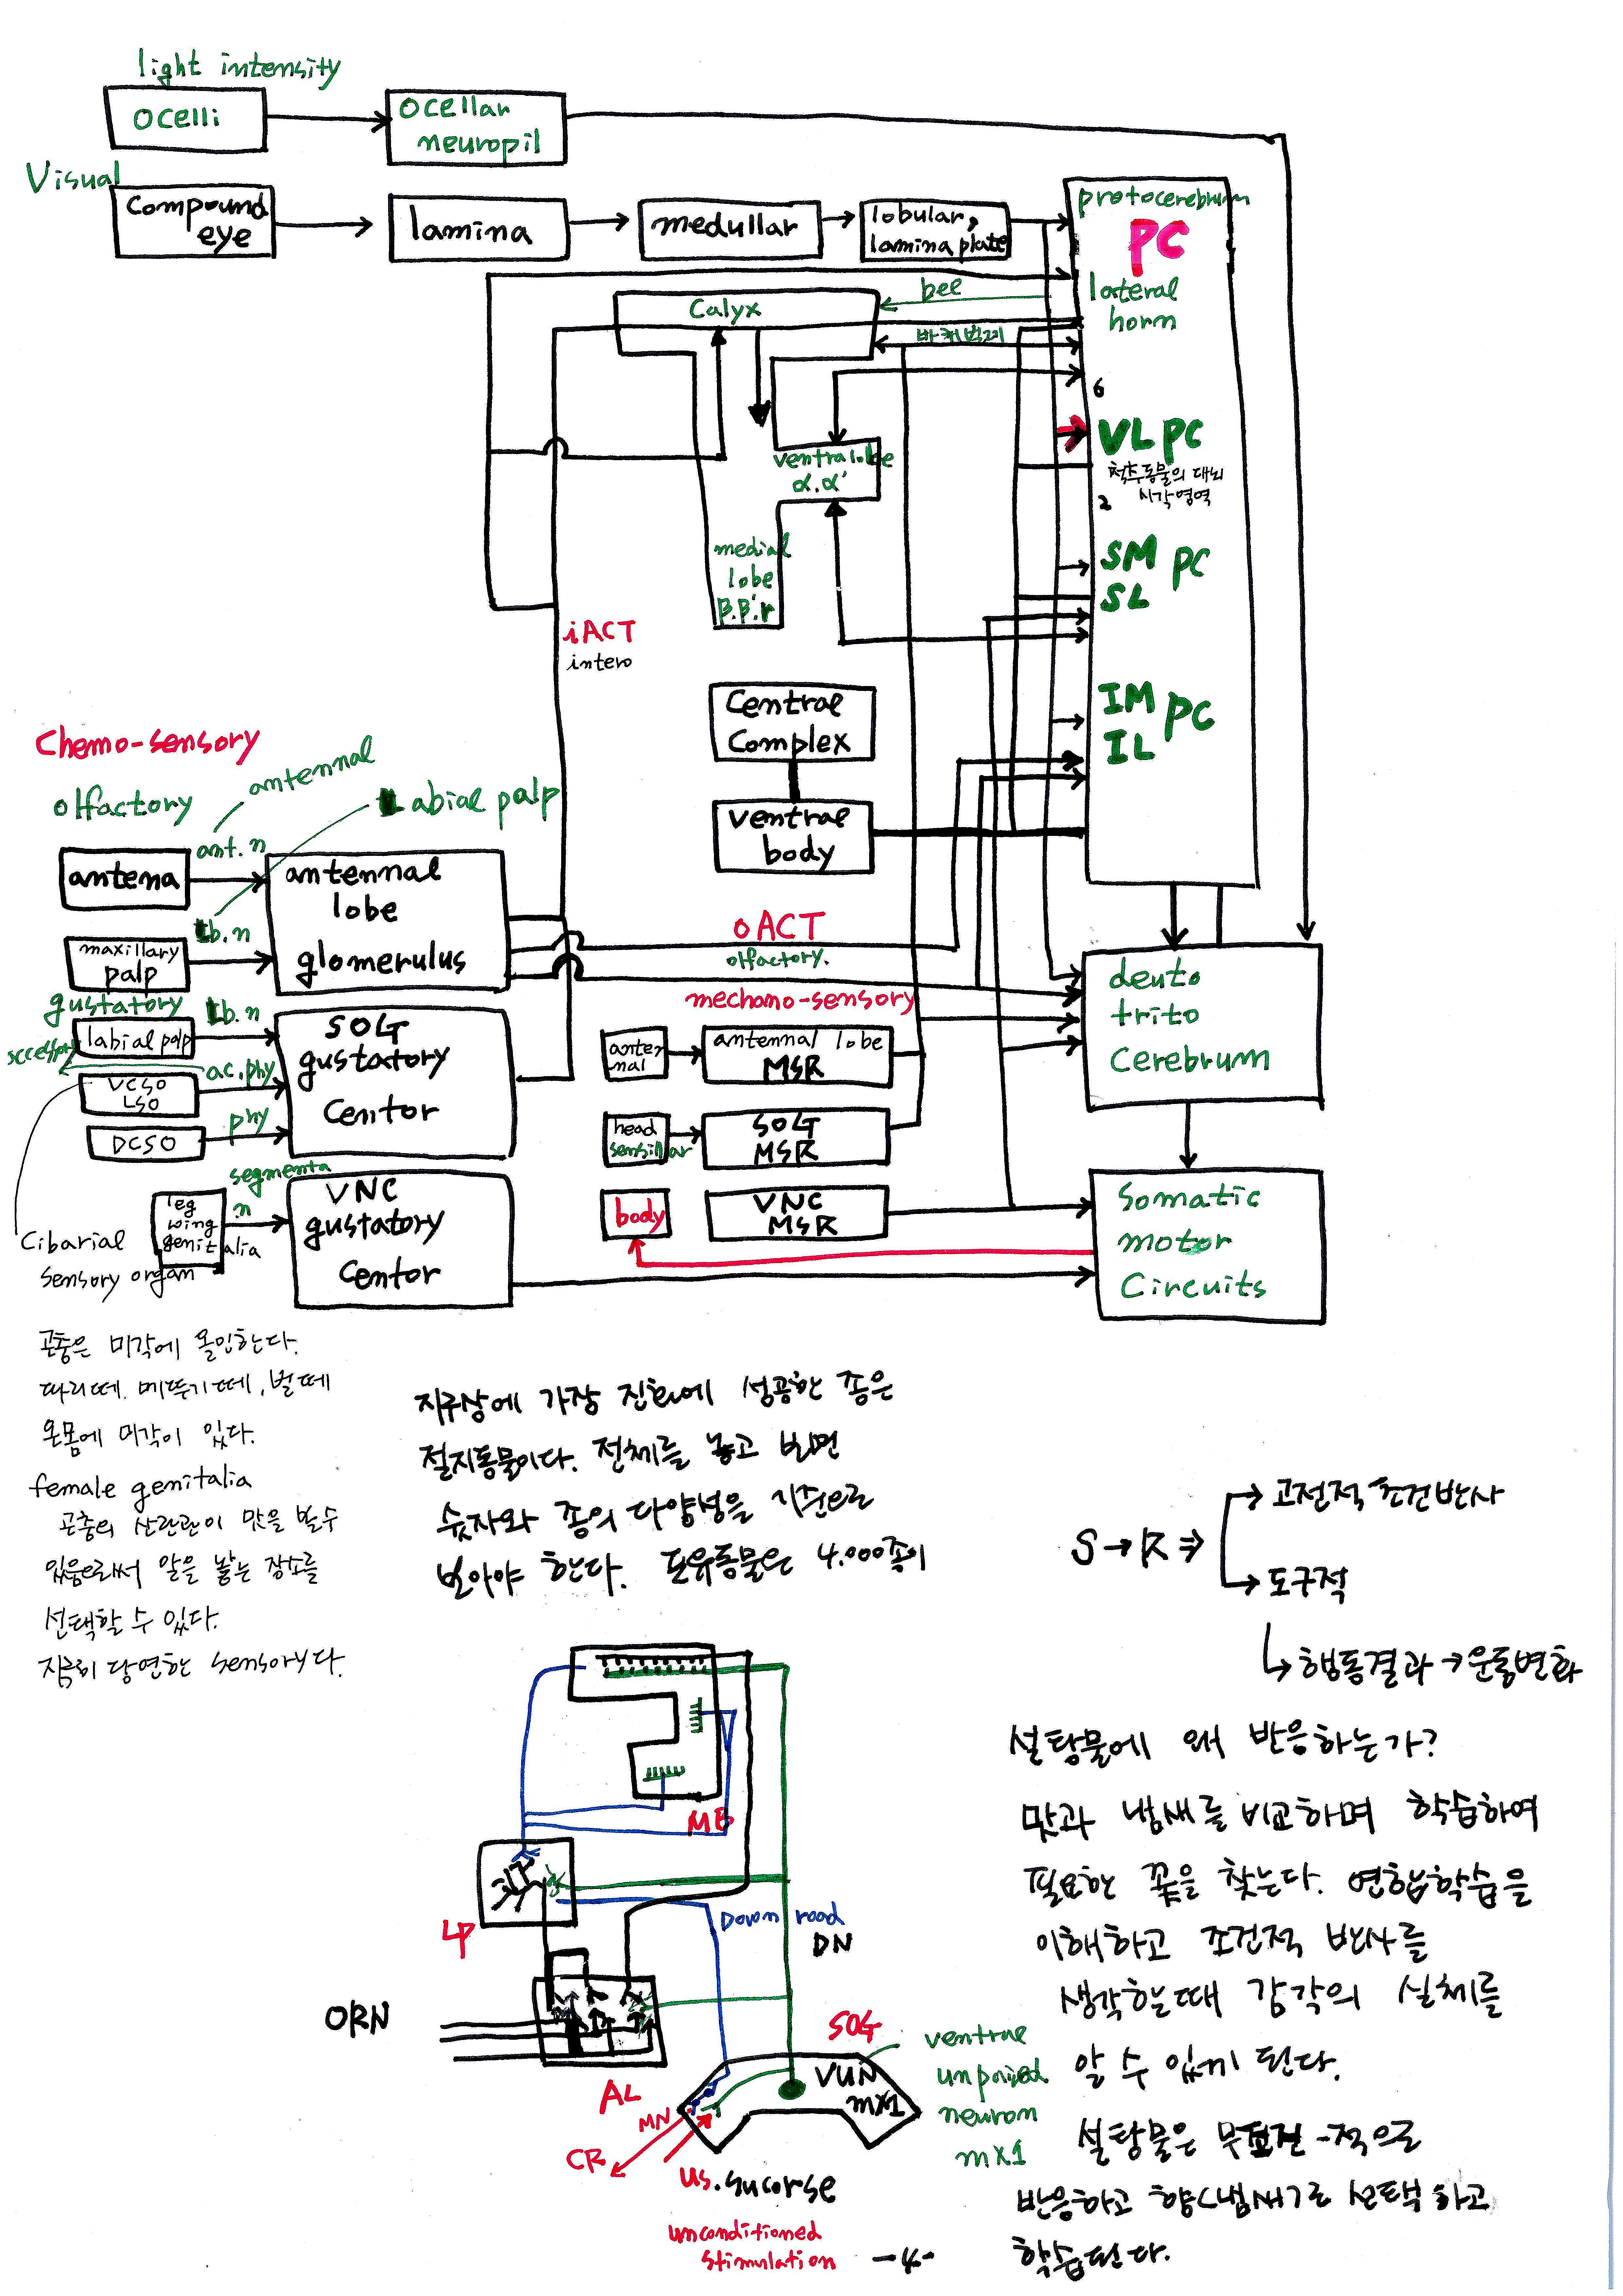 light intensity
ocelli
ocellar
neuropil
Visual
compound
eye
lamina
medullar
lobular,
lamina plate
protocerebrum
PC
lateral
horn
bee
Calyx
바퀴벌레
6
VLPC
척추동물의 대뇌
시각영역
2
ventral lobe
α.α'
medial
lobe
β.β'.r
SM PC
SL
iACT
intero
IM PC
IL
Central
Complex
ventral
body
Chemo-sensory
olfactory
antennal
Labial palp
antena
ant.n
antennal
lobe
glomerulus
maxillary
palp
Lb.n
oACT
olfactory.
deuto
trito
cerebrum
gustatory
labial palp
Lb.n
SOG
gustatory
centor
VCSO
LSO
ac.phy
DCSO
phy
mechano-sensory
anten
nal
antennal lobe
MSR
head
sensillar
SOG
MSR
body
VNC
MSR
Somatic
motor
Circuits
segmenta
n
leg
wing
genitalia
VNC
gustatory
centor
Cibarial
sensory organ
곤충은 미각에 올인한다.
파리떼. 메뚜기떼, 벌떼
온몸에 미각이 있다.
female genitalia
곤충의 산란관이 맛을 볼수
있음으로써 알을 낳는 장소를
선택할 수 있다.
지극히 당연한 sensory다.
지구상에 가장 진화에 성공한 종은
절지동물이다. 전체를 놓고 보면
숫자와 종의 다양성을 기준으로
보아야 한다. 포유동물은 4.000종이
S → R ⇒
고전적 조건반사
도구적
행동결과 → 운동변화
설탕물에 왜 반응하는가?
맛과 냄새를 비교하며 학습하여
필요한 꽃을 찾는다. 연합학습을
이해하고 조건적 반사를
생각할때 감각의 실체를
알 수 있게 된다.
설탕물은 무조건-적으로
반응하고 향<냄새>로 선택하고
학습된다.
MB
LP
Down road
DN
ORN
AL
SOG
VUN
mx1
ventrae
unpaired
neuron
mx1
MN
CR
US.sucorse
unconditioned
stimulation
-4-